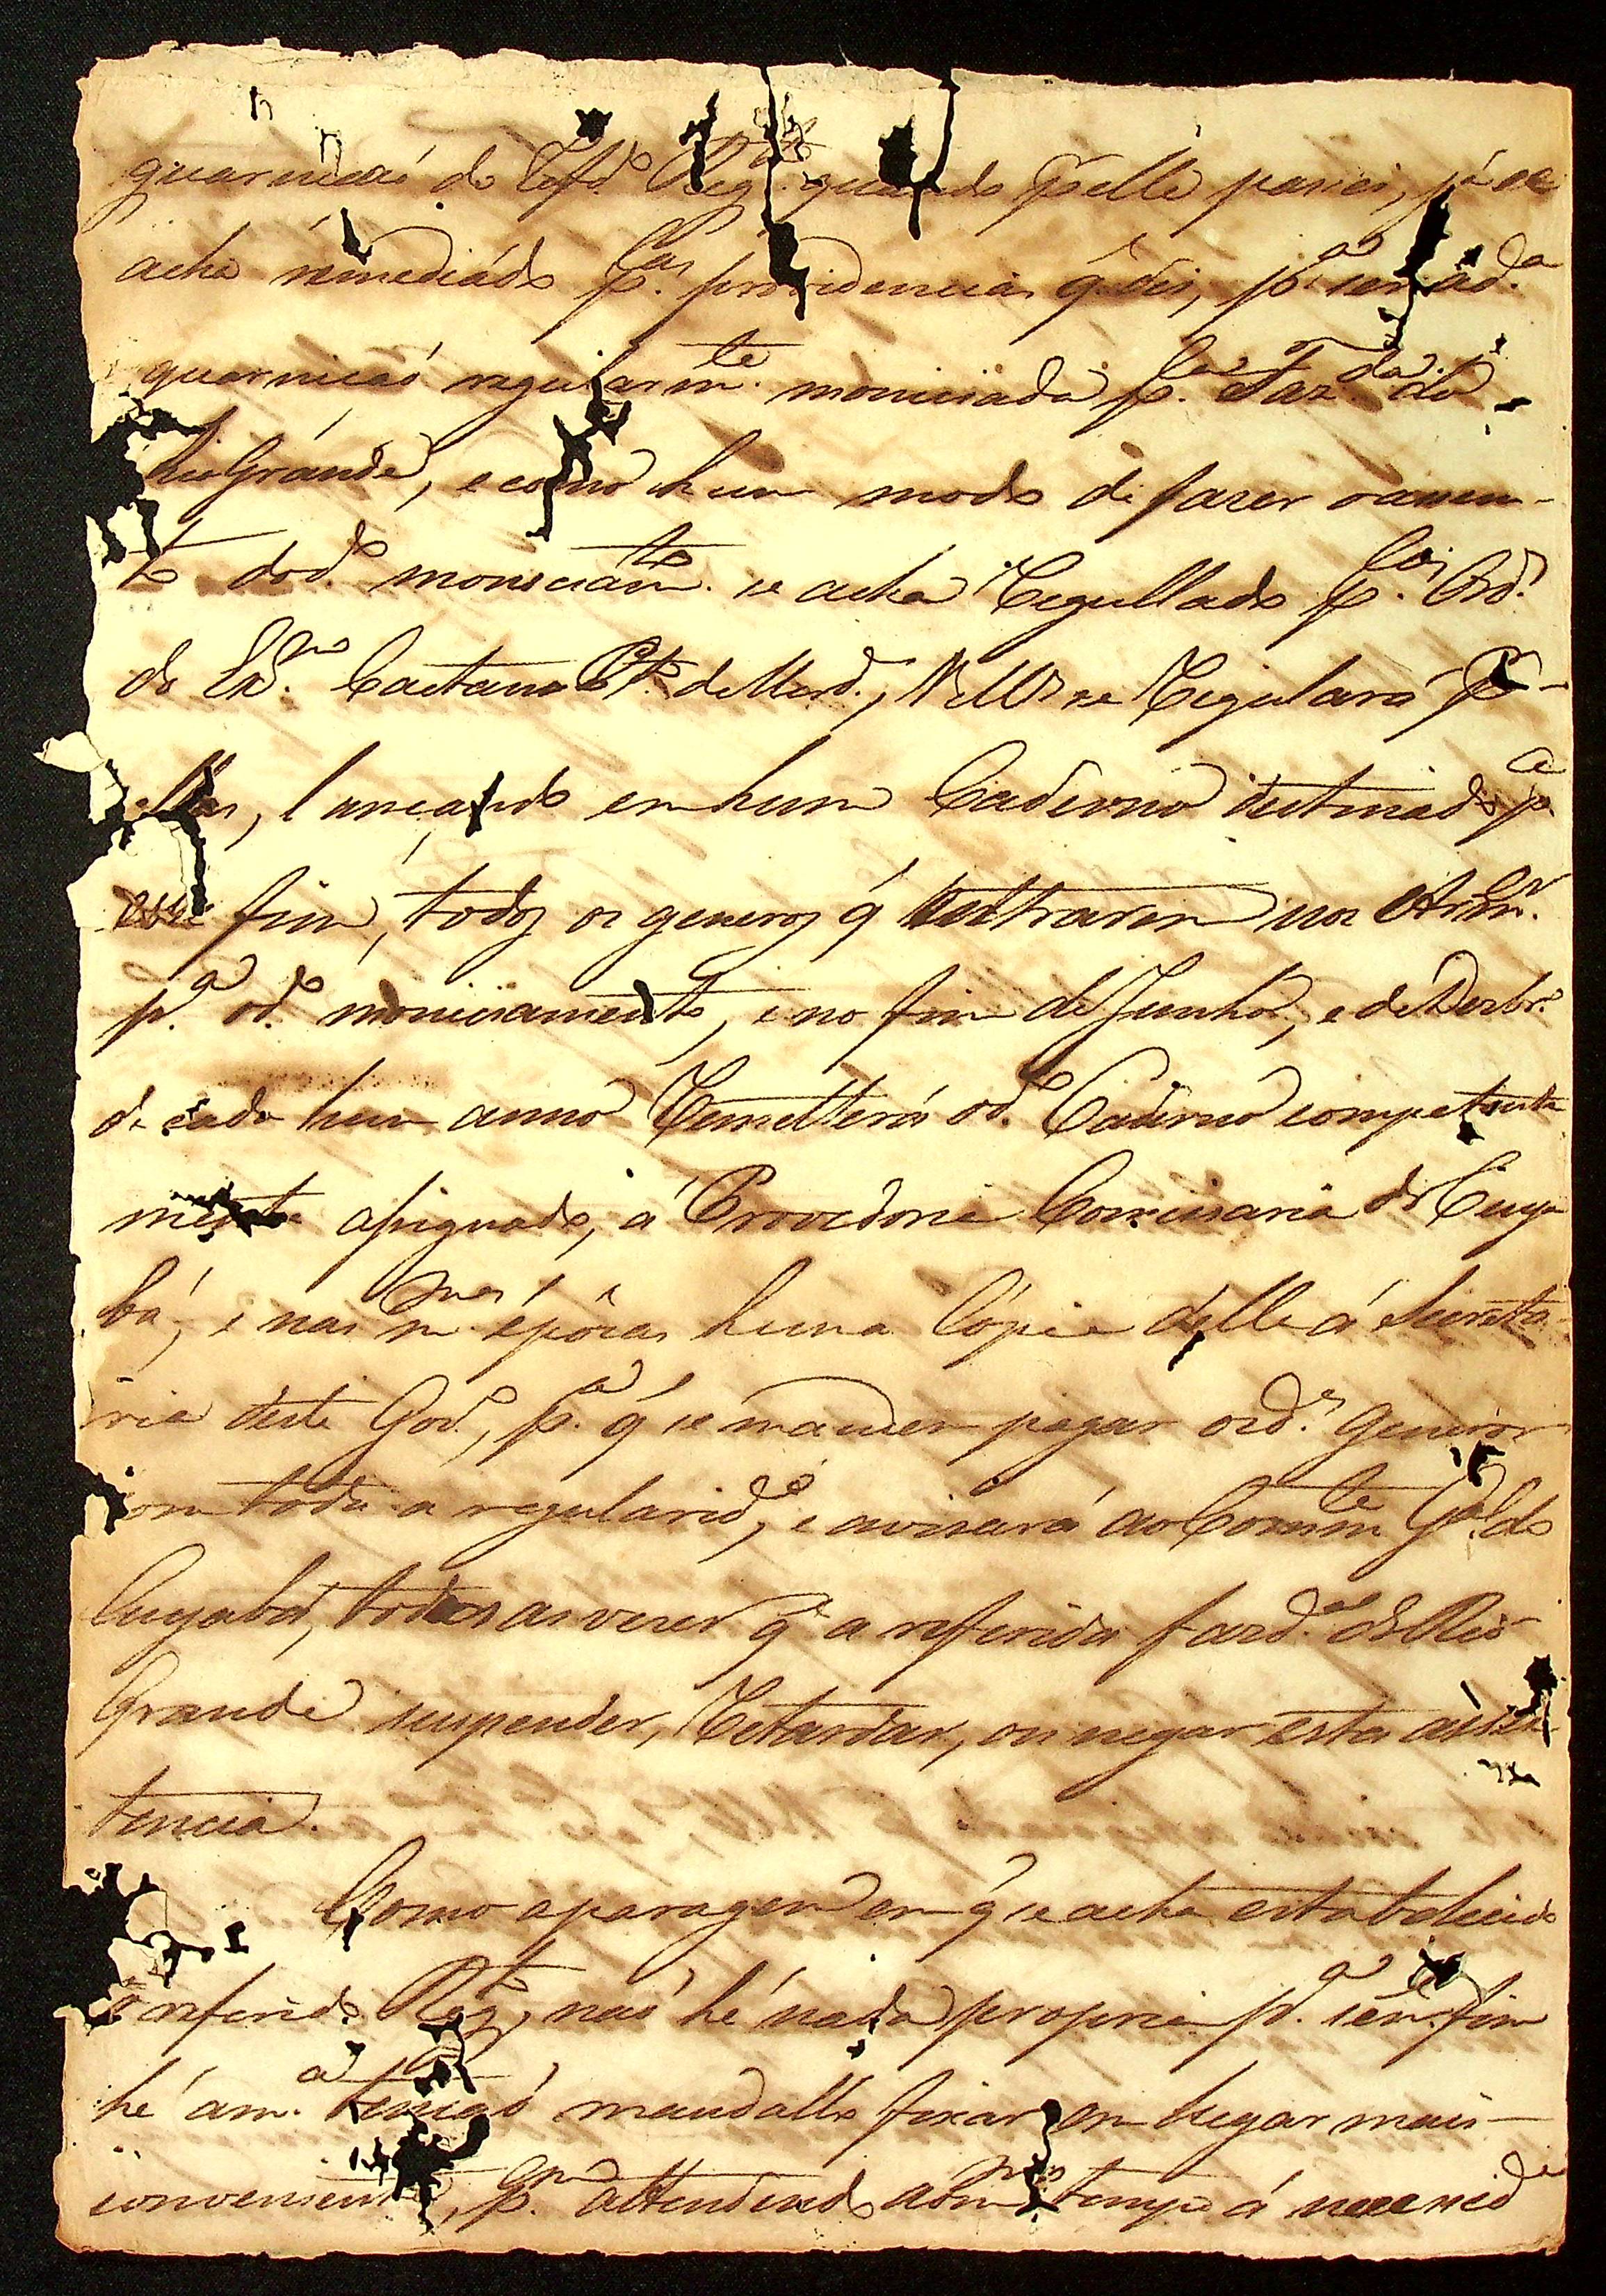 guarnicaó do Refd.º Reg.to quando p elle pasei, já se
acha remediádo p.las providencias q dei, p.a ser a d.a
guarnicaó regularm.te moniciada p.la Faz.da do
Rio Grande, e como hum modo de fazer o asen-
to do d.º moniciam.to se acha Regullado p.las Ord.s
do Ex.mo Caetano P.to de M se Regulará p
ellas, lancando em hum Caderno destinado p.a
este fim, todos os generos q entrarem nos Arm.s
p.a o d.º moniciamento, e no fim de Junho, e de Dezbr.º
de cada hum anno Remetterá o d.º Caderno competente
mente asignado, á Provedoria Comisaria do Cuya
bá, e nas m.mas epócas huma Cópia delle á Secreta-
ria deste Gov.º, p.a q se mandem pagar os d.s Generos
com toda a regularid.e, e avisará ao Comm.te G.al do
Cuyabá, todas as vezes q a referida fazd.a do Rio
Grande suspender, Retardar, ou negar esta asis-
tencia.
Como aparagem em q se acha estabelecido
o referido Reg.to, naó hé nada propria p.a seu fim
hé a m.a tencaó mandallo fixar em lugar mais
conveniente, p.m attendendo ao m.mo tempo á necesid.e